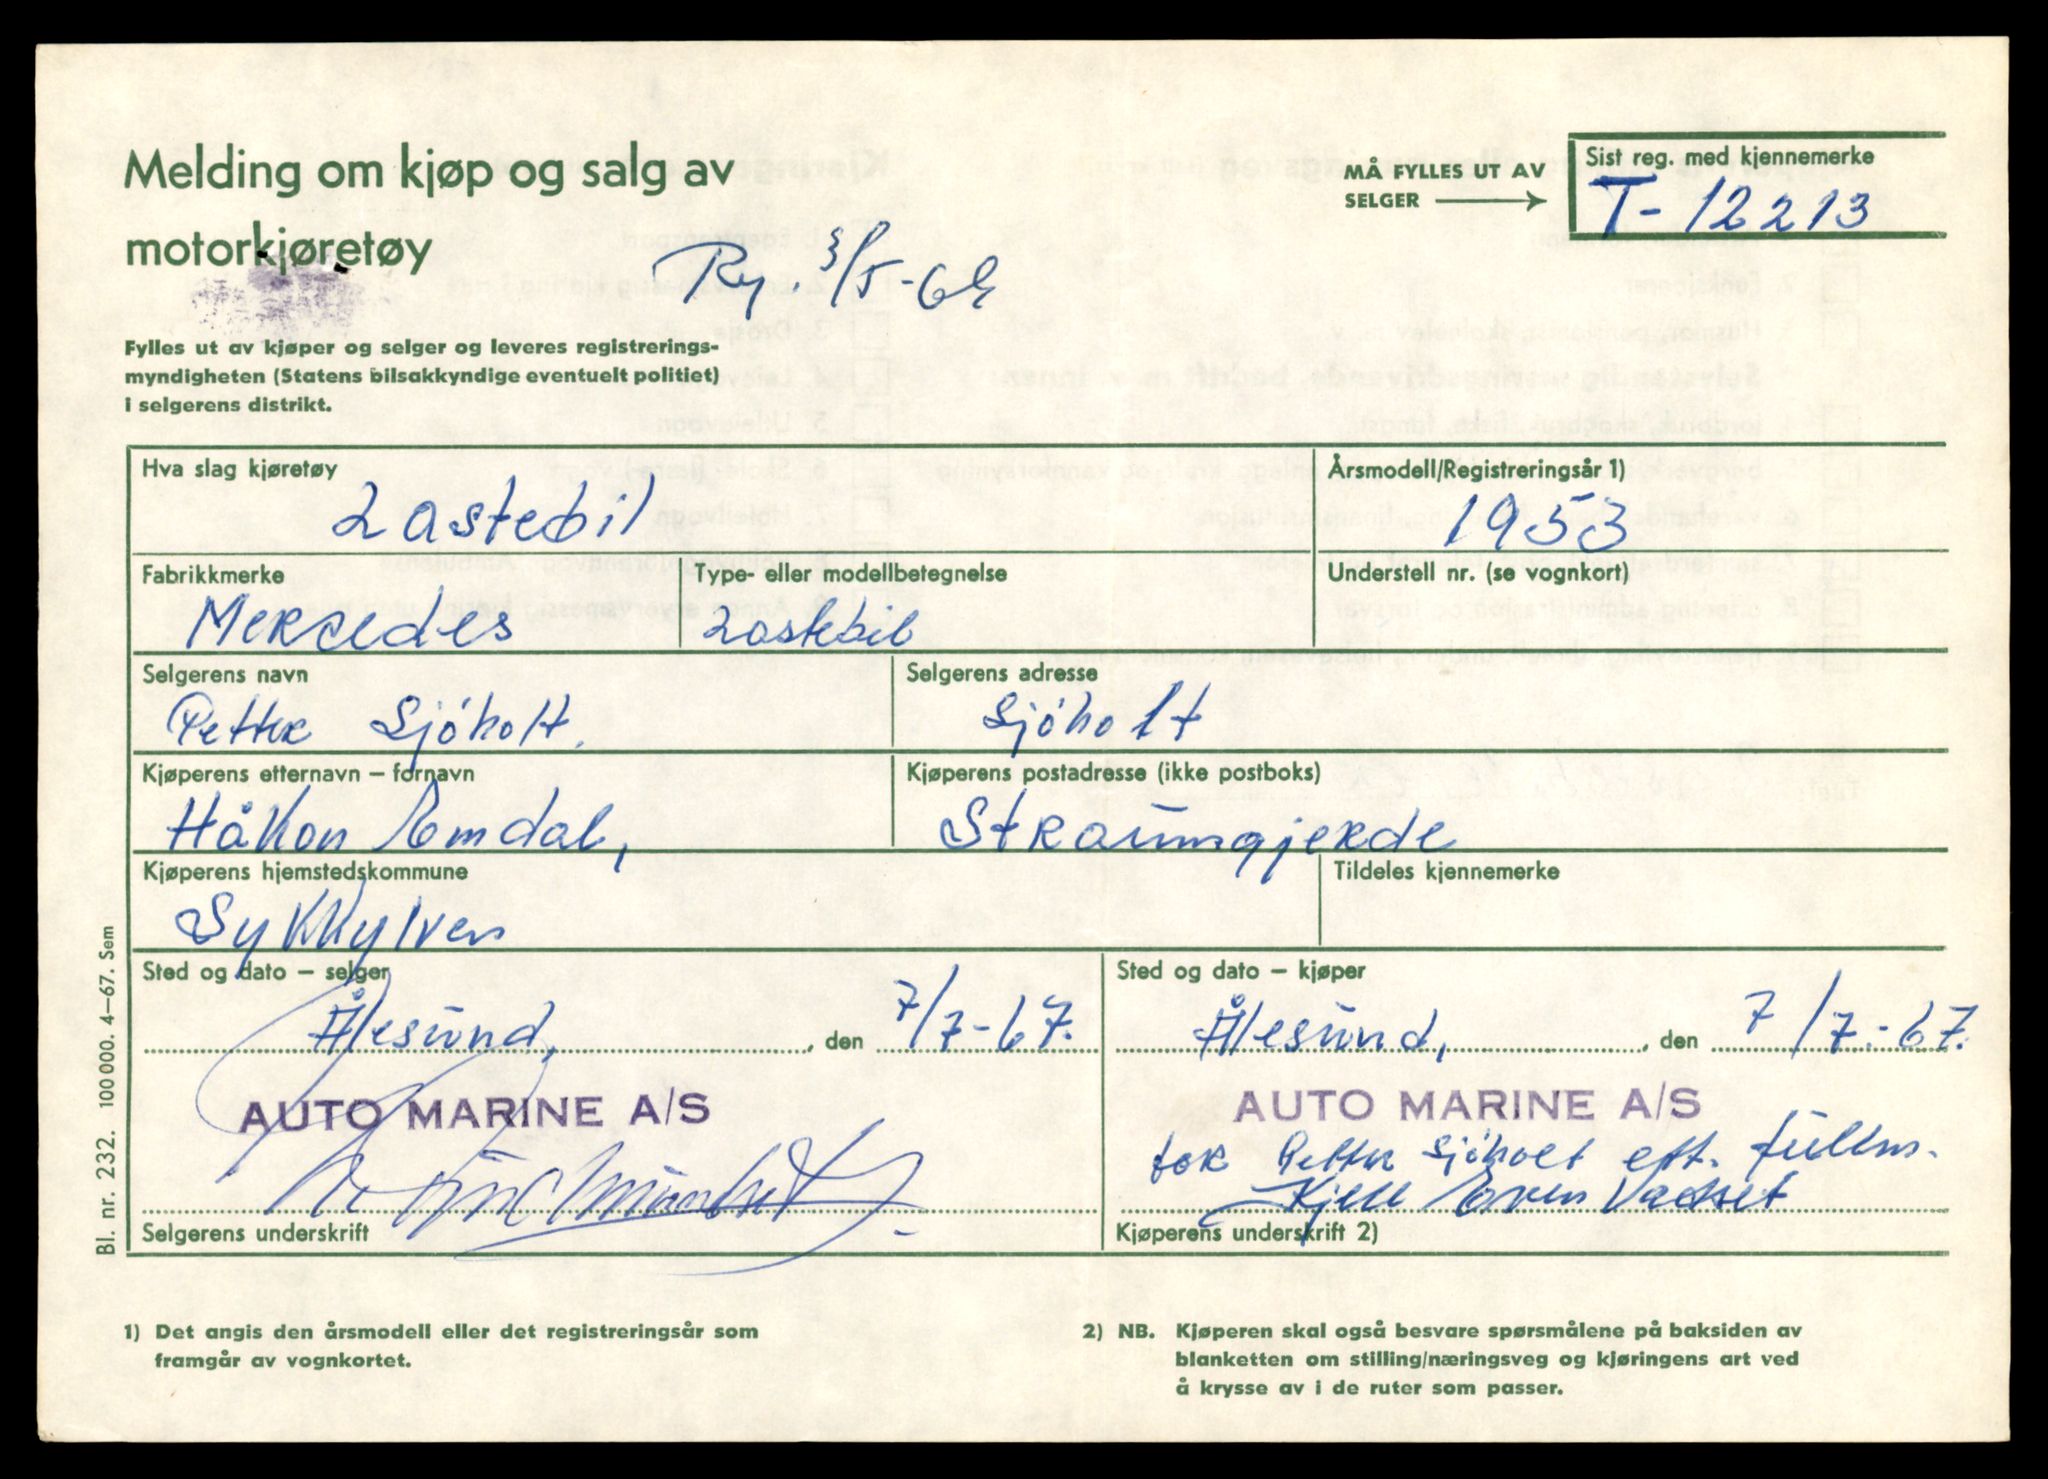 Melding om kjøp og salg av
motorkjøretøy
MÅ FYLLES UT AV
SELGER
Sist reg. med kjennemerke
T- 12213
Fylles ut av kjøper og selger og leveres registrerings-
myndigheten (Statens bilsakkyndige eventuelt politiet)
i selgerens distrikt.
Hva slag kjøretøy
Lastebil
Årsmodell/Registreringsår 1)
1953
Fabrikkmerke
Mercedes
Type- eller modellbetegnelse
Lastebil
Understell nr. (se vognkort)
Selgerens navn
Petter Sjøholt.
Selgerens adresse
Sjøholt
Kjøperens etternavn – fornavn
Håkon Emdal,
Kjøperens postadresse (ikke postboks)
Straumgjerde
Kjøperens hjemstedskommune
Sykkylven
Tildeles kjennemerke
Sted og dato – selger
Ålesund, den 7/7-67.
Sted og dato – kjøper
Ålesund, den 7/7-67.
AUTO MARINE A/S
Selgerens underskrift
AUTO MARINE A/S
for Petter Sjøholt eft. fullm.
Kjell Even Vadset
Kjøperens underskrift 2)
Bl. nr. 232. 100 000. 4–67. Sem
1) Det angis den årsmodell eller det registreringsår som
framgår av vognkortet.
2) NB. Kjøperen skal også besvare spørsmålene på baksiden av
blanketten om stilling/næringsveg og kjøringens art ved
å krysse av i de ruter som passer.